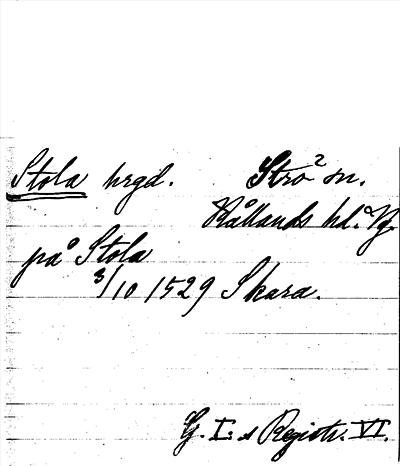 Stola hrgd. Strö sn.
Kållands hd. Vg.
på Stola
3/10 1529 Skara.
G. I:s Registr. VI.